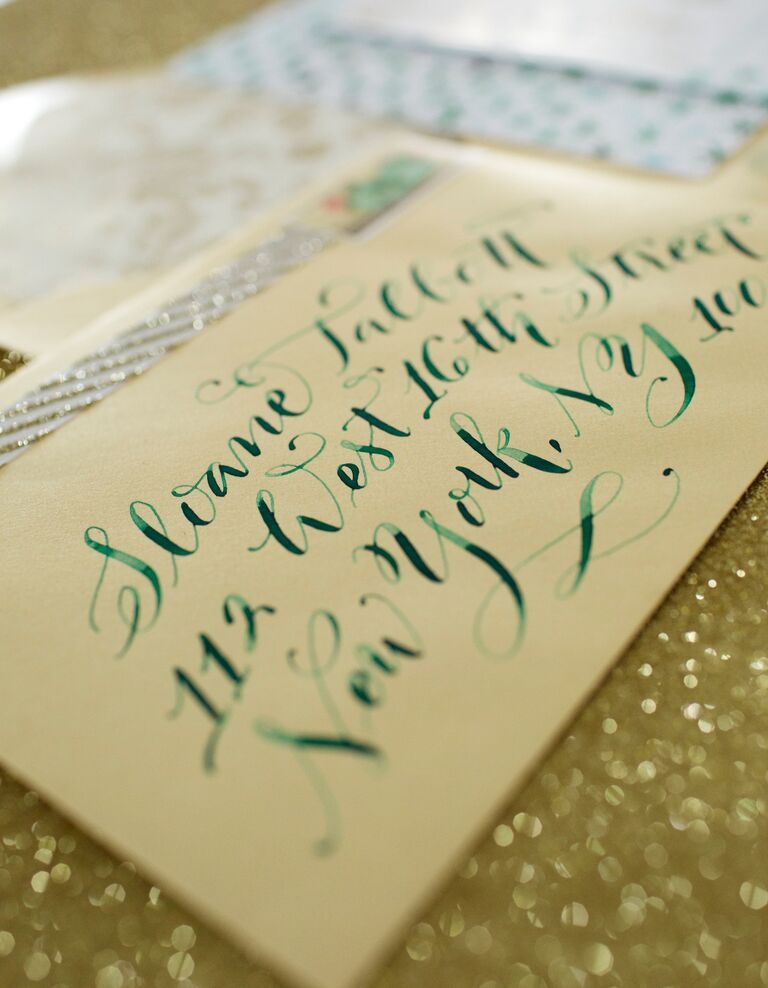 Sloane Talbott
112 West 16th Street
New York, NY 100